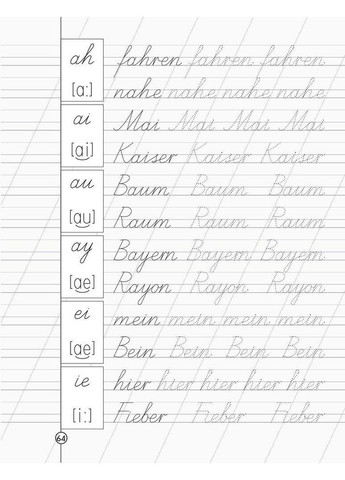 ah fahren fahren fahren
[a:] nahe nahe nahe nahe
ai Mai Mai Mai Mai
[ai] Kaiser Kaiser Kaiser
au Baum Baum Baum
[au] Raum Raum Raum
ay Bayern Bayern Bayern
[ae] Rayon Rayon Rayon
ei mein mein mein mein
[ae] Bein Bein Bein Bein
ie hier hier hier hier hier
[i:] Fieber Fieber Fieber
64